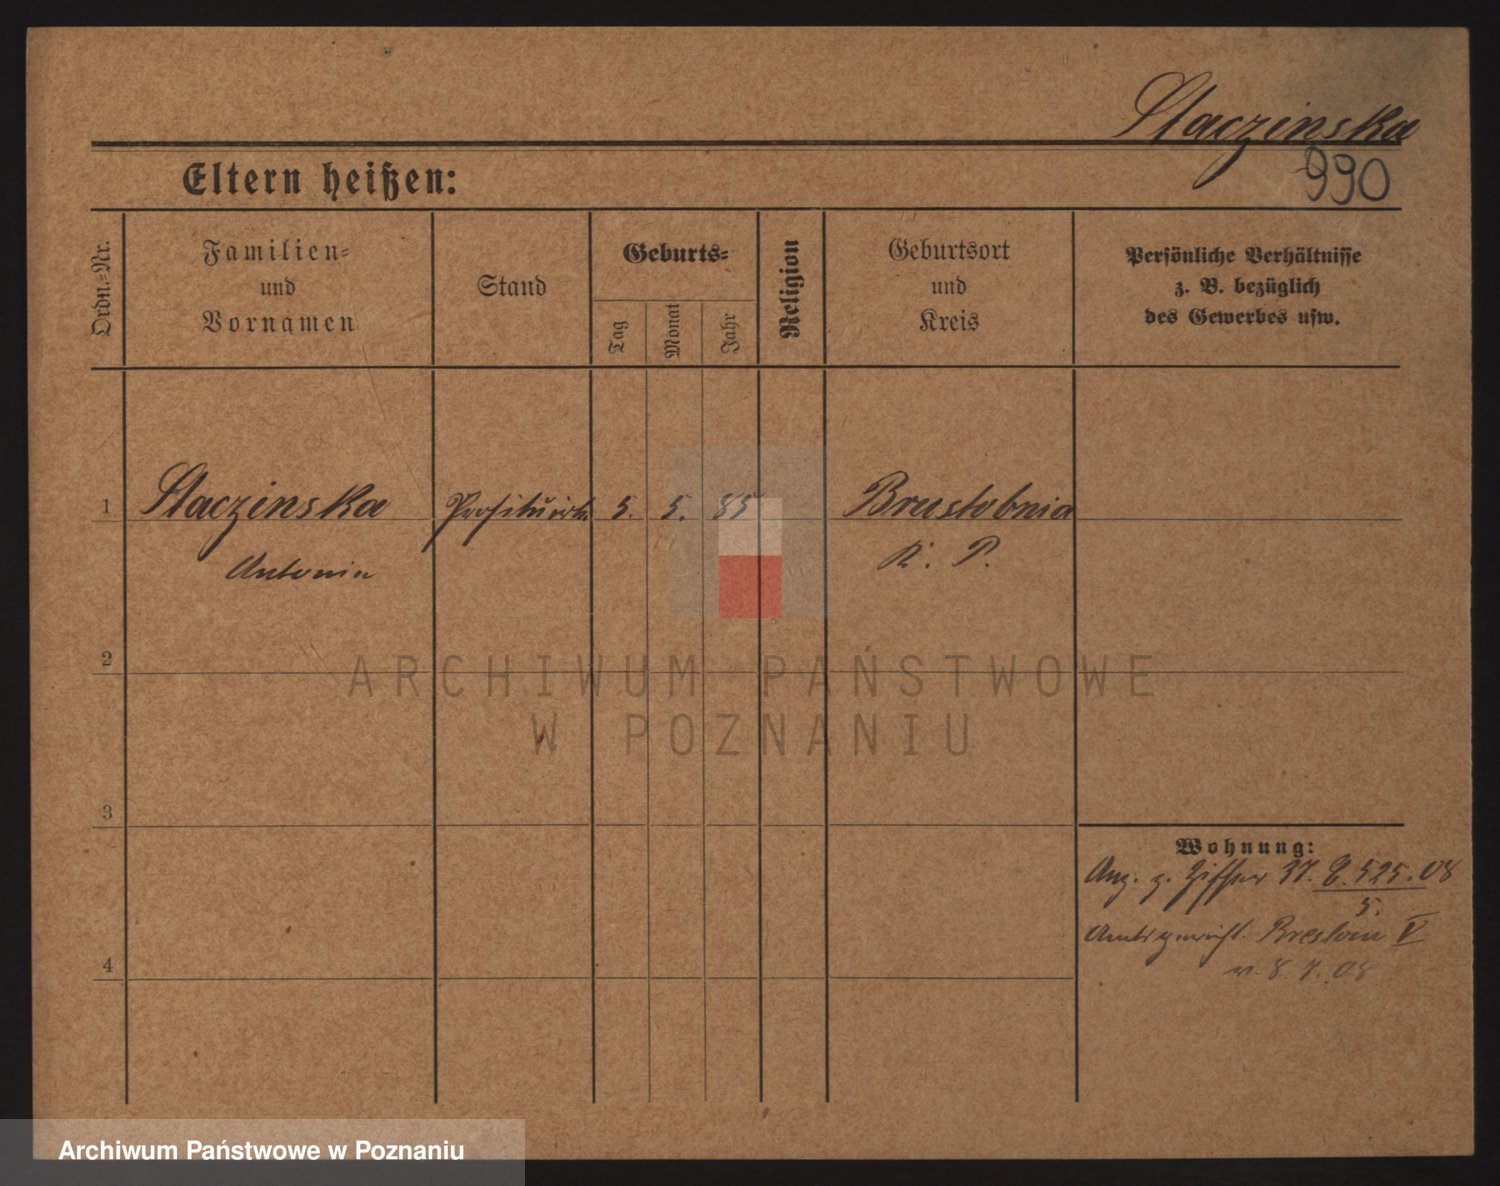 Staczinska
990
Eltern heißen:
Ordn.-Nr.
Familien-
und
Vornamen
Stand
Geburts-
Tag
Monat
Jahr
Religion
Geburtsort
und
Kreis
Persönliche Verhältnisse
z. B. bezüglich
des Gewerbes usw.
1
Staczinska
Antonie
5.
5.
85
K. P.
2
3
4
Wohnung:
Anz. z. Ziffer 37. 525.08
5.
Amtsgericht. Breslau V
v. 8 7. 08
ARCHIWUM PAŃSTWOWE
W POZNANIU
Archiwum Państwowe w Poznaniu